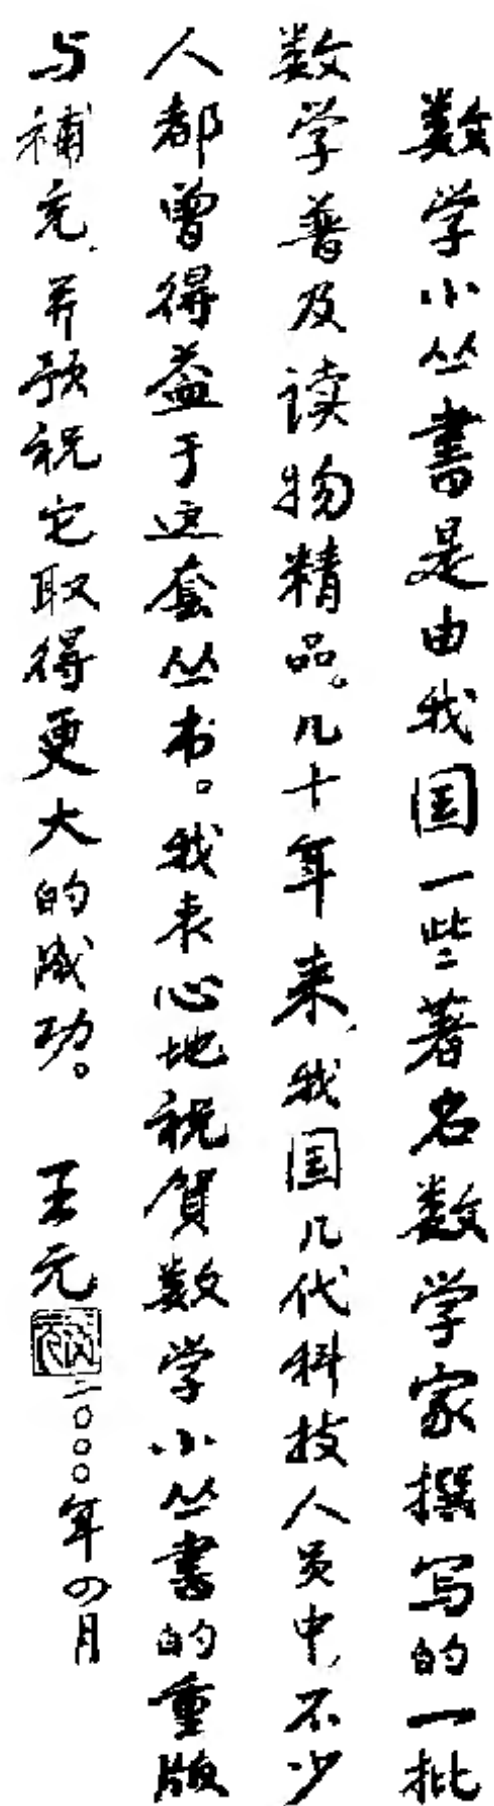 数学小丛書是由我国一些著名数学家撰写的一批
数学普及读物精品。几十年来,我国几代科技人员中,不少
人都曾得益于这套丛书。我衷心地祝贺数学小丛書的重版
与補充,并预祝它取得更大的成功。
王元
二〇〇〇年四月